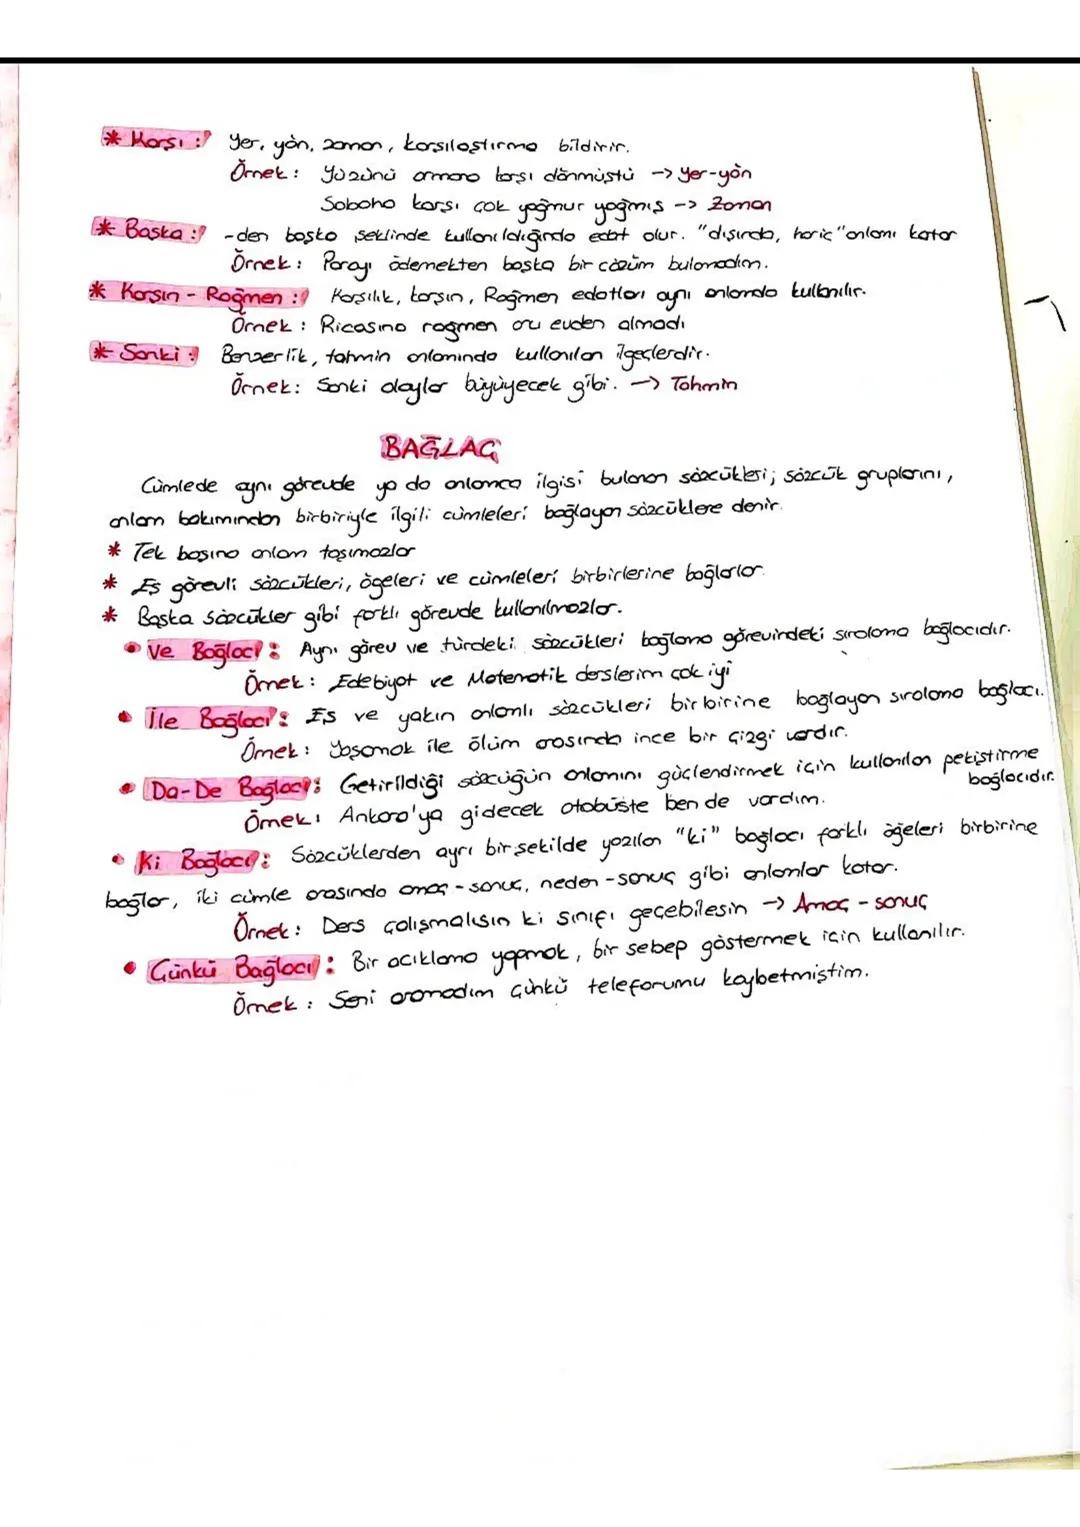 * Karşı : Yer, yön, zaman, karşılaştırma bildirir.
Örnek : Yüzünü ormana karşı dönmüştü -> Yer-yön
Sabaha karşı çok yağmur yağmış -> Zaman
* Başka : -den başka şeklinde kullanıldığında edat olur. "dışında, hariç" anlamı katar
Örnek : Parayı ödemekten başka bir çözüm bulamadım.
* Karşın - Rağmen : Karşılık, karşın, Rağmen edatları aynı anlamda kullanılır.
Örnek : Ricasına rağmen onu evden almadı
* Sanki : Benzerlik, tahmin anlamında kullanılan ilgeçlerdir.
Örnek : Sanki olaylar büyüyecek gibi. -> Tahmin
BAĞLAÇ
Cümlede aynı görevde ya da anlamca ilgisi bulunan sözcükleri; sözcük gruplarını,
anlam bakımından birbiriyle ilgili cümleleri bağlayan sözcüklere denir.
* Tek başına anlam taşımazlar
* Eş görevli sözcükleri, öğeleri ve cümleleri birbirlerine bağlarlar.
* Başka sözcükler gibi farklı görevde kullanılmazlar.
• Ve Bağlacı : Aynı görev ve türdeki sözcükleri bağlama görevindeki sıralama bağlacıdır.
Örnek : Edebiyat ve Matematik derslerim çok iyi
• İle Bağlacı : Eş ve yakın anlamlı sözcükleri birbirine bağlayan sıralama bağlacı.
Örnek : Yaşamak ile ölüm arasında ince bir çizgi vardır.
• Da-De Bağlacı : Getirildiği sözcüğün anlamını güçlendirmek için kullanılan pekiştirme
bağlacıdır.
Örnek : Ankara'ya gidecek otobüste ben de vardım.
• Ki Bağlacı : Sözcüklerden ayrı bir şekilde yazılan "ki" bağlacı farklı öğeleri birbirine
bağlar, iki cümle arasında amaç - sonuç, neden - sonuç gibi anlamlar katar.
Örnek : Ders çalışmalısın ki sınıfı geçebilesin -> Amaç - sonuç
• Çünkü Bağlacı : Bir açıklama yapmak, bir sebep göstermek için kullanılır.
Örnek : Seni aramadım çünkü telefonumu kaybetmiştim.